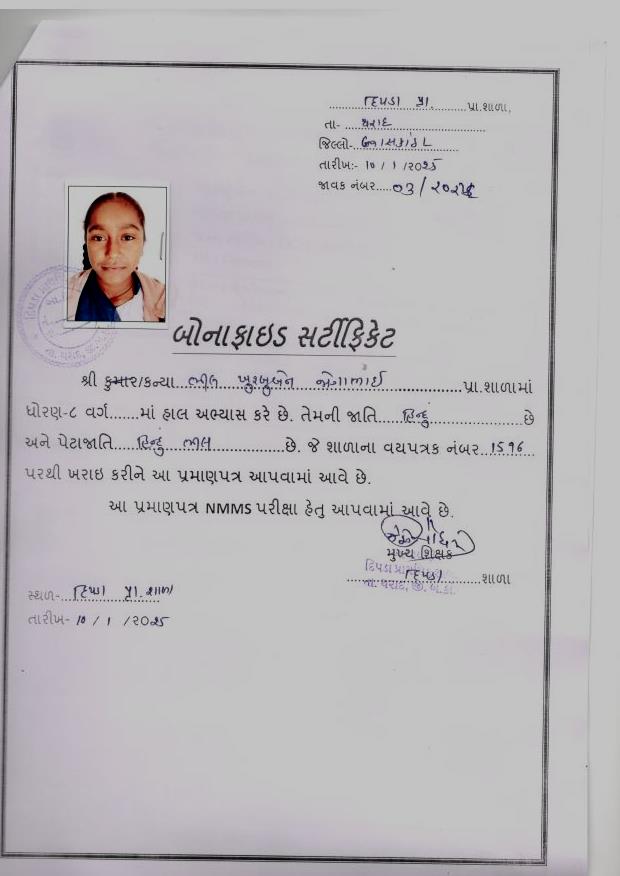 દિપડા પ્રા. પ્રા.શાળા,
તા- થરાદ
જિલ્લો- બનાસકાંઠા
તારીખ:- ૧૦ / ૧ /૨૦૨૫
જાવક નંબર.....૦૩/૨૦૨૫
બોનાફાઇડ સર્ટીફિકેટ
શ્રી કુમાર/કન્યા ભીલ ખુશ્બુબેન જોગાભાઈ પ્રા.શાળામાં
ધોરણ-૮ વર્ગ.......માં હાલ અભ્યાસ કરે છે. તેમની જાતિ હિન્દુ છે
અને પેટાજાતિ હિન્દુ ભીલ છે. જે શાળાના વયપત્રક નંબર ૧૫૧૬
પરથી ખરાઇ કરીને આ પ્રમાણપત્ર આપવામાં આવે છે.
આ પ્રમાણપત્ર NMMS પરીક્ષા હેતુ આપવામાં આવે છે.
મુખ્ય શિક્ષક
દિપડા શાળા
તા. થરાદ, જી. બ.કાં.
સ્થળ- દિપડા પ્રા. શાળા
તારીખ- ૧૦ / ૧ /૨૦૨૫